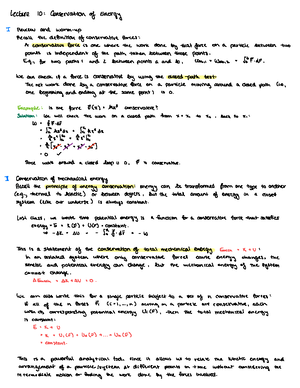 Lecture 10: Conservation of energy
I Review and warm-up
Recall the definition of conservative forces:
A conservative force is one where the work done by that force on a particle between two
points is independent of the path taken between those points.
E.g., for two paths 1 and 2 between points a and b,
We can check if a force is conservative by using the closed-path test:
The net work done by a conservative force on a particle moving around a closed path (i.e.,
one beginning and ending at the same point) is 0.
Example: Is the force conservative?
Solution: We will check the work on a closed path from x1 to x2, back to x1
Since work around a closed loop is 0, F is conservative.
II Conservation of mechanical energy
Recall the principle of energy conservation: energy can be transformed from one type to another
(e.g., thermal to kinetic) or between objects, but the total amount of energy in a closed
system (like our universe) is always constant.
Last class, we wrote that potential energy is a function for a conservative force that satisfies
This is a statement of the conservation of total mechanical energy
In an isolated system where only conservative forces cause energy changes, the
kinetic and potential energies can change, but the mechanical energy of the system
cannot change.
We can also write this for a single particle subject to a set of n conservative forces:
If all of the n forces acting on a particle are conservative, each
with its corresponding potential energy, then the total mechanical energy
is constant:
E = K + U
= constant.
This is a powerful analytical tool, since it allows us to relate the kinetic energy and
arrangement of a particle/system at different points in time without considering the
intermediate motion or finding the work done by the forces involved.